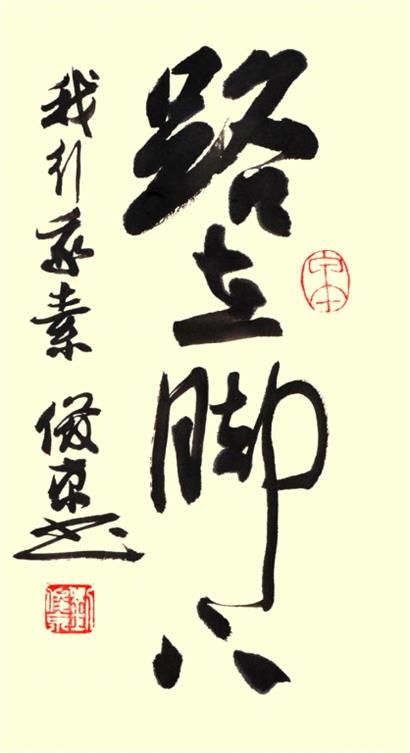 路在脚下
我行我素 俊东书